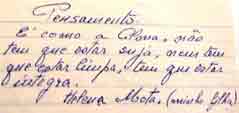 Pensamento:
É como a Alma, não
tem que estar suja, nem tem
que estar limpa, tem que estar
íntegra.
Helena Mota. (minha filha)